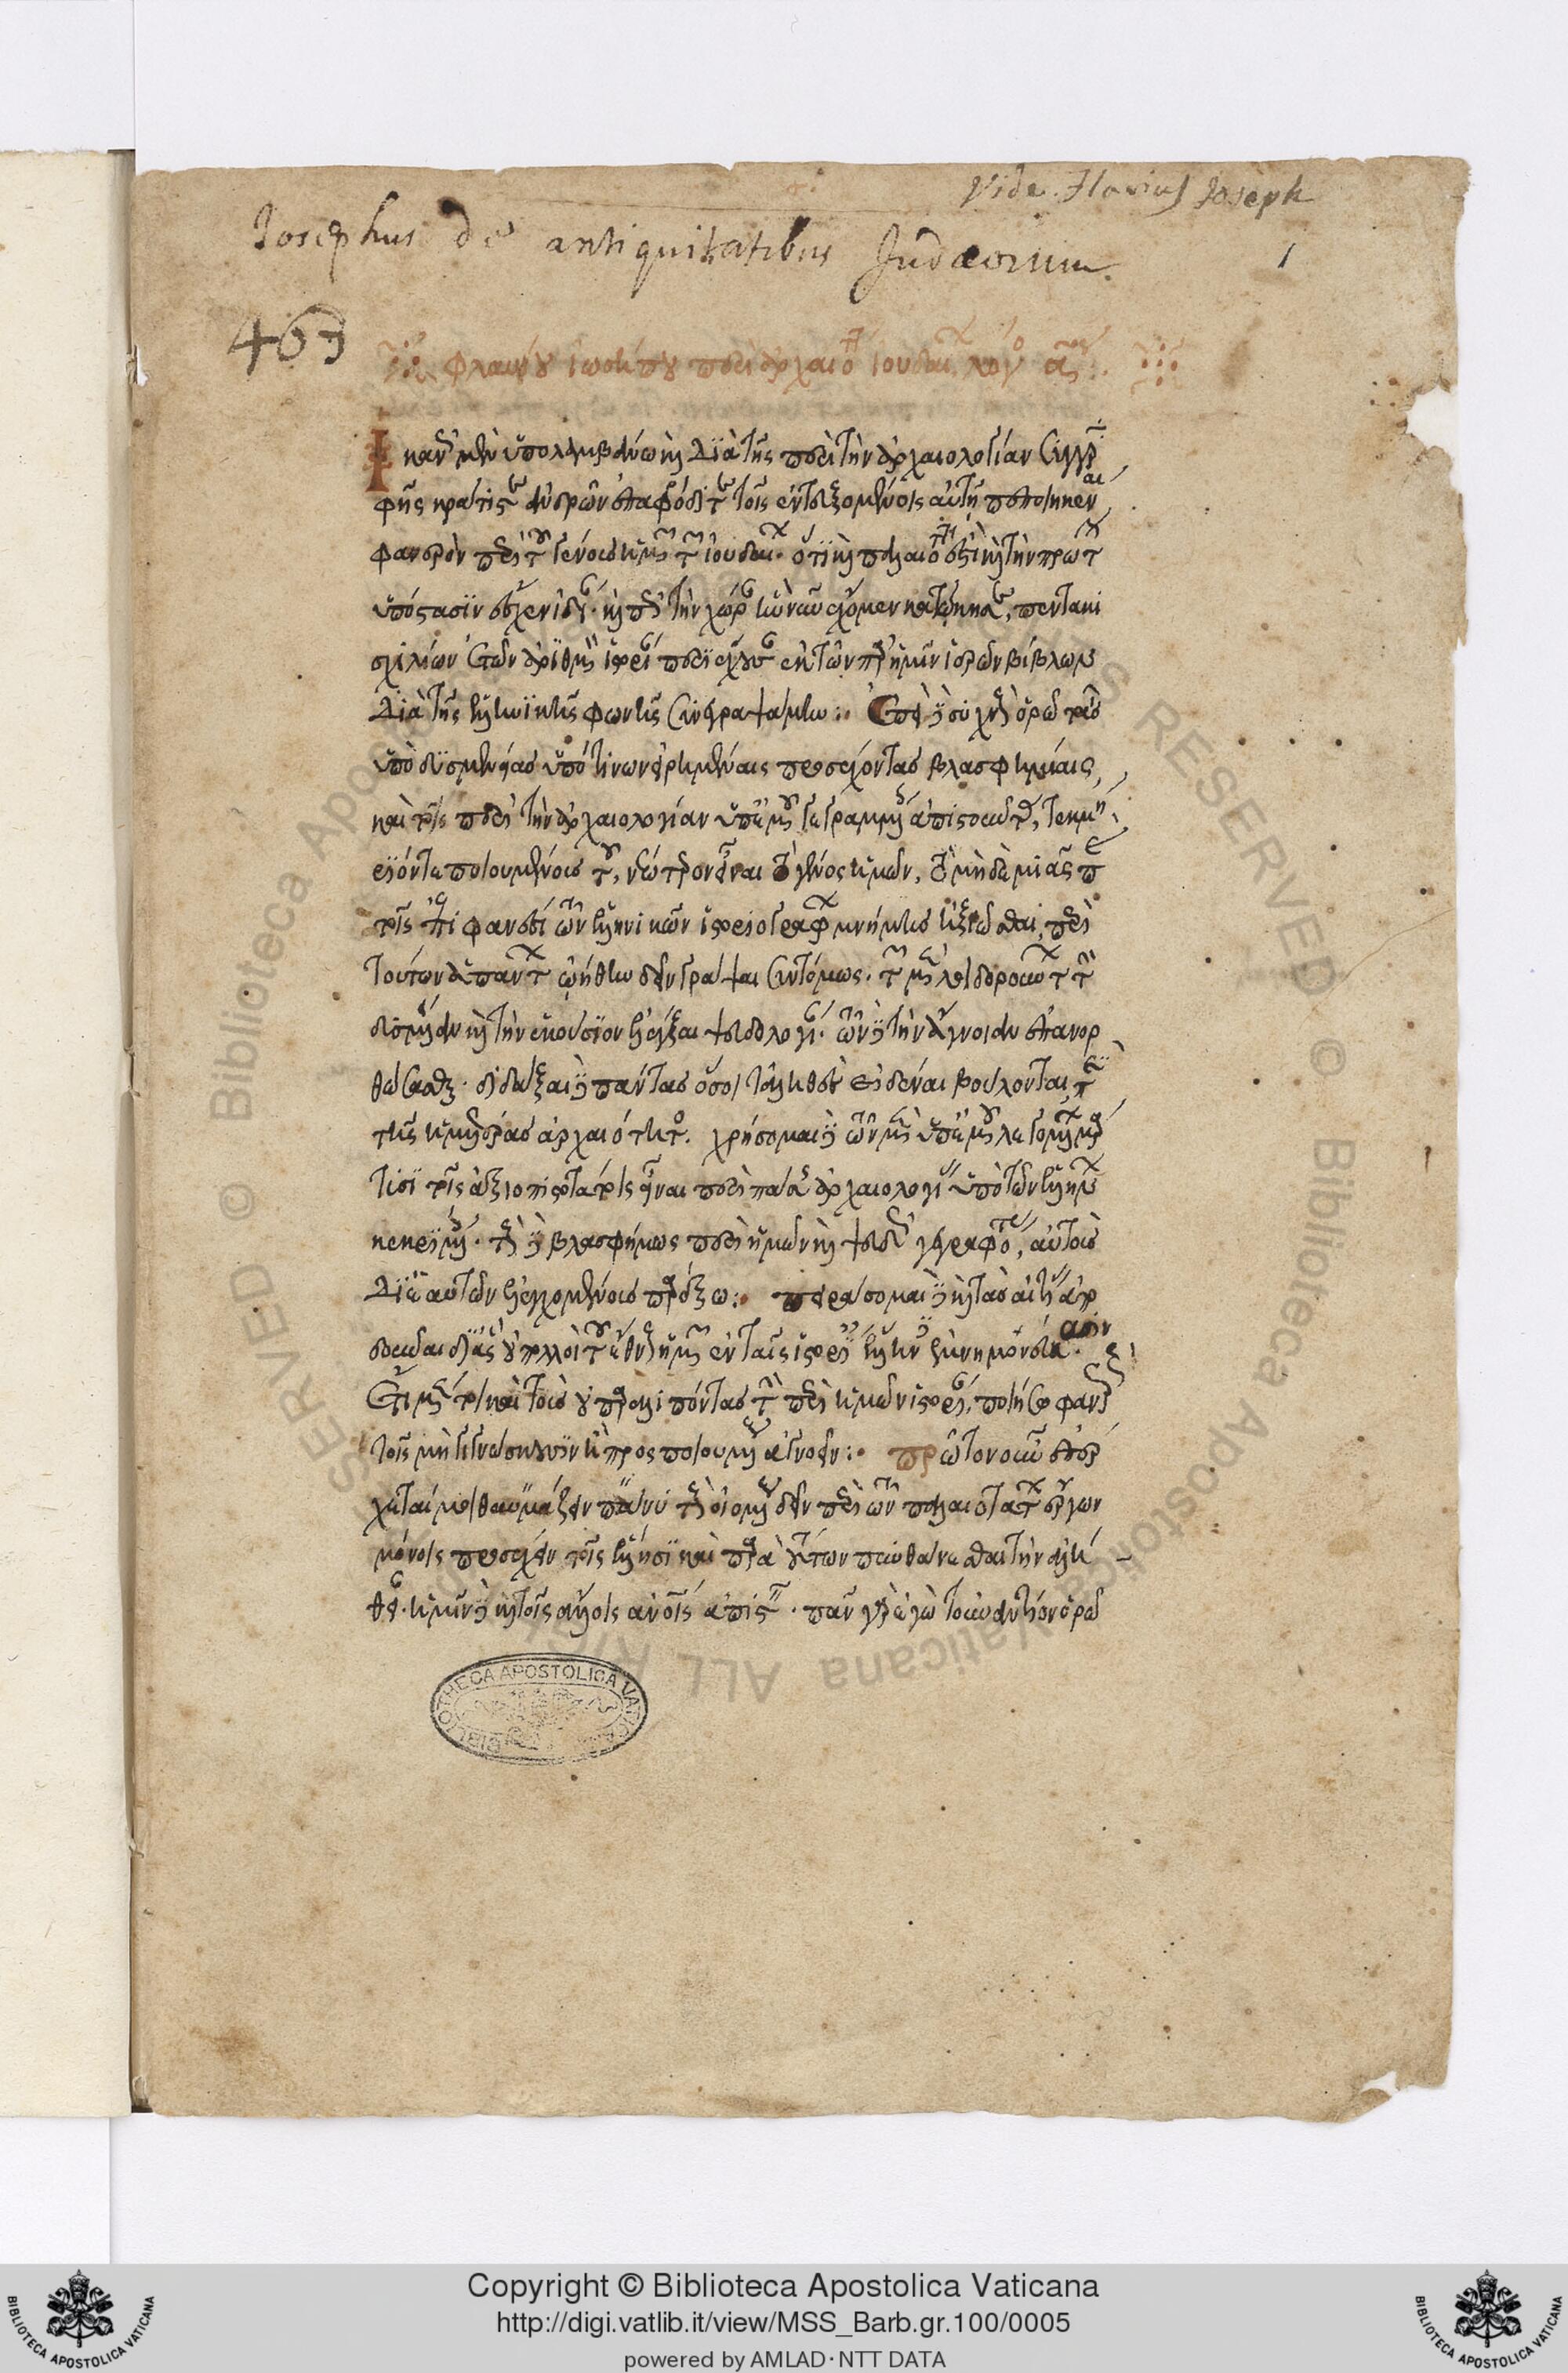 Vide Flavius Joseph
Josephus de antiquitatibus Judæorum.
1
463
φλαυΐου ἰωσήπου περὶ ἀρχαιότητος ἰουδαίων λόγος αος
Ἱκανῶς μὲν ὑπολαμβάνω καὶ διὰ τῆς περὶ τὴν ἀρχαιολογίαν συγγρα
φῆς κράτιστε ἀνδρῶν ἐπαφρόδιτε τοῖς ἐντευξομένοις αὐτῇ πεποιηκέναι
φανερὸν περὶ τοῦ γένους ἡμῶν τῶν ἰουδαίων. ὅτι καὶ παλαιότατόν ἐστι καὶ τὴν πρώτην
ὑπόστασιν ἔσχεν ἰδίαν. καὶ περὶ τὴν χώραν ἣν νῦν ἔχομεν κατῴκησε, πεντακι
σχιλίων ἐτῶν ἀριθμὸν ἱστορίαν περιέχουσαν ἐκ τῶν παρ' ἡμῖν ἱερῶν βίβλων
διὰ τῆς ἑλληνικῆς φωνῆς συνεγραψάμην: Ἐπεὶ δὲ συχνοὺς ὁρῶ ταῖς
ὑπὸ δυσμενείας ὑπό τινων εἰρημέναις προσέχοντας βλασφημίαις,
καὶ τοῖς περὶ τὴν ἀρχαιολογίαν ὑπ' ἐμοῦ γεγραμμένοις ἀπιστοῦντας, τεκμή
ριόν τε ποιουμένους τοῦ, νεώτερον εἶναι τὸ γένος ἡμῶν, τὸ μηδεμιᾶς πα
τοῖς ἐπιφανέσι τῶν ἑλληνικῶν ἱστοριογράφων μνήμης ἠξιῶσθαι, περὶ
τούτων ἁπάντων ᾠήθην δεῖν γράψαι συντόμως. τῶν μὲν λοιδορούντων τὴν
δυσμένειαν καὶ τὴν ἑκούσιον ἐλέγξαι ψευδολογίαν. τῶν δὲ τὴν ἄγνοιαν ἐπανορ
θώσασθαι. διδάξαι δὲ πάντας ὅσοι τἀληθὲς εἰδέναι βούλονται, περὶ
τῆς ἡμετέρας ἀρχαιότητος. χρήσομαι δὲ τῶν μὲν ὑπ' ἐμοῦ λεγομένων μάρ
τυσι τοῖς ἀξιοπιστοτάτοις εἶναι περὶ πάσης ἀρχαιολογίας ὑπὸ τῶν ἑλλήνων
κεκριμένοις. τοὺς δὲ βλασφήμως περὶ ἡμῶν καὶ ψευδῶς γεγραφότας, αὐτοὺς
δι' ἑαυτῶν ἐλεγχομένους παρέξω: πειράσομαι δὲ καὶ τὰς αἰτίας ἀπο
δοῦναι δι' ἃς οὐ πολλοὶ τοῦ ἔθνους ἡμῶν ἐν ταῖς ἱστορίαις ἕλληνες ἐμνημονεύκασιν.
ἔτι μέντοι καὶ τοὺς οὐ παραλιπόντας τὴν περὶ ἡμῶν ἱστορίαν, ποιήσω φανεροὺς
τοῖς μὴ γιγνώσκουσιν ἢ προσποιουμένοις ἀγνοεῖν: πρῶτον οὖν ἐπέρ
χεταί μοι θαυμάζειν πάνυ τοὺς οἰομένους δεῖν περὶ τῶν παλαιοτάτων ἔργων
μόνοις προσέχειν τοῖς ἕλλησι καὶ παρὰ τούτων πυνθάνεσθαι τὴν ἀλή
θειαν. ἡμῖν δὲ καὶ τοῖς ἄλλοις ἀνθρώποις ἀπιστεῖν. πᾶν γὰρ ἐγὼ τοὐναντίον ὁρῶ
BIBLIOTHECA APOSTOLICA VATICANA
© Biblioteca Apostolica Vaticana ALL RIGHTS RESERVED
Copyright © Biblioteca Apostolica Vaticana
http://digi.vatlib.it/view/MSS_Barb.gr.100/0005
powered by AMLAD · NTT DATA
BIBLIOTECA APOSTOLICA VATICANA
BIBLIOTECA APOSTOLICA VATICANA